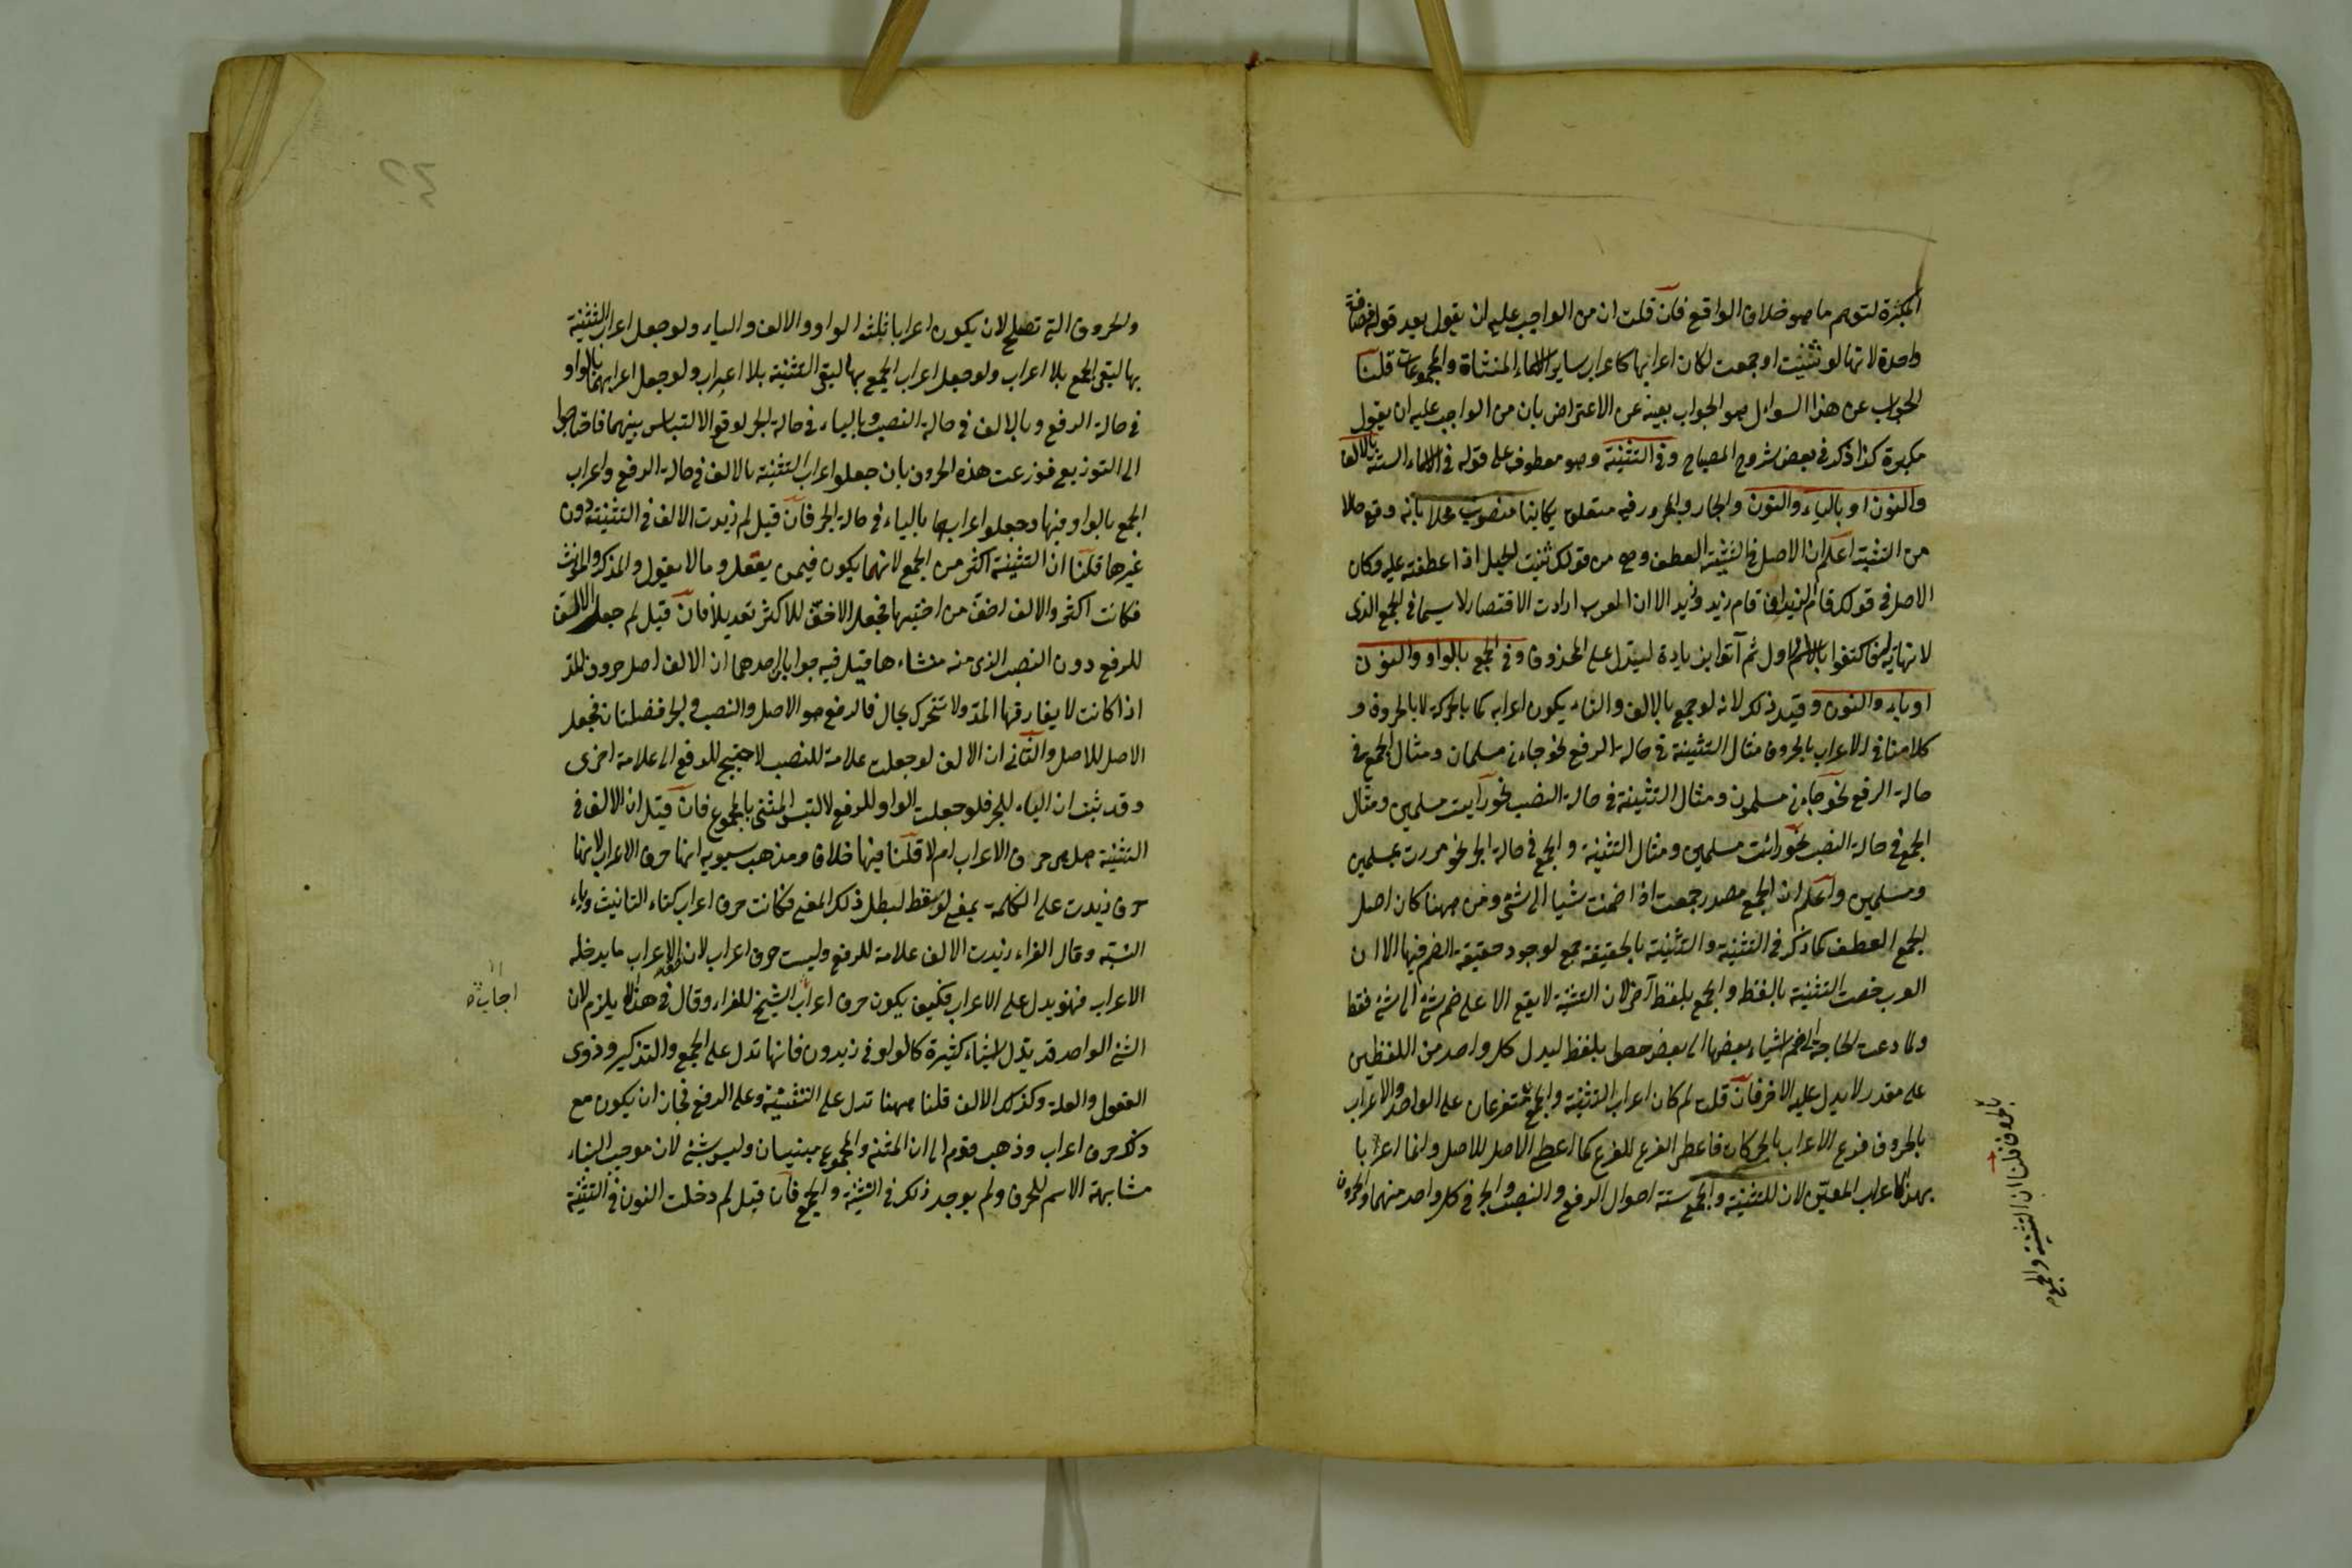 المكبرة لتوهم ما هو خلاف الواقع فان قلت ان من الواجب عليه ان يقول بعد قوله مضافة
واحدة لانها لو ثنيت او جمعت لكان اعرابها كاعراب ساير الاسماء المثناة والمجموعات قلنا
الجواب عن هذا السوال هو الجواب بعينه عن الاعتراض بان من الواجب عليه ان يقول
مكبرة كذا ذكر فى بعض شروح المصباح وفى التثنية وهو معطوف على قوله فى الاسماء الستة بالالف
والنون او بالياء والنون والجار والمجرور فيه متعلق بكاينا منصوب محلا بانه وقع حالا
من التثنية اعلم ان الاصل فى التثنية العطف وهى من قولك ثنيت الحبل اذا عطفته عليه وكان
الاصل فى قولك قام الزيدان قام زيد وزيد الا ان العرب ارادت الاقتصار لا سيما فى الجمع الذى
لا نهاية له فاكتفوا بالاسم الاول ثم آتوا بزيادة ليدل على المحذوف وفى الجمع بالواو والنون
او بالياء والنون وقيد ذلك لانه لو جمع بالالف والتاء يكون اعرابه كما بالحركة لا بالحروف و
كلامنا فى الاعراب بالحروف مثال التثنية فى حالة الرفع نحو جاءنى مسلمان ومثال الجمع فى
حالة الرفع نحو جاءنى مسلمون ومثال التثنية فى حالة النصب نحو رايت مسلمين ومثال
الجمع فى حالة النصب نحو رائت مسلمين ومثال التثنية والجمع فى حالة الجر نحو مررت بمسلمين
ومسلمين واعلم ان الجمع مصدر جمعت اذا ضممت شيا الى شئ ومن ههنا كان اصل
الجمع العطف كما ذكر فى التثنية والتثنية بالحقيقة جمع لوجود حقيقة الضم فيها الا ان
العرب خصت التثنية بالفظ والجمع بلفظ آخر لان التثنية لا يقع الا على ضم شئ الى شئ فقط
ولما دعت الحاجة الى ضم اشياء بعضها الى بعض خصوا بلفظ ليدل كل واحد من اللفظين
على مقدر لا يدل عليه الاخر فان قلت لم كان اعراب التثنية والجمع متفرعان على الواحد والاعراب
بالحروف فرع الاعراب بالحركات فاعطى الفرع للفرع كما اعطى الاصل للاصل وانما اعربا
بهذا الاعراب المعين لان للتثنية والجمع ستة احوال الرفع والنصب والجر فى كل واحد منهما والحروف
بالحروف قلنا ان التثنية والجمع
والحروف التى تصلح لان يكون اعرابا ثلثة الواو والالف والياء ولو جعل اعراب التثنية
بها لبقى الجمع بلا اعراب ولو جعل اعراب الجمع بها لبقى التثنية بلا اعراب ولو جعل اعرابهما بالواو
فى حالة الرفع وبالالف فى حالة النصب وبالياء فى حالة الجر لوقع الالتباس بينهما فاحتاجوا
الى التوزيع فوزعت هذه الحروف بان جعلوا اعراب التثنية بالالف فى حالة الرفع واعراب
الجمع بالواو فيها وجعلوا اعرابهما بالياء فى حالة الجر فان قيل لم زيدت الالف فى التثنية دون
غيرها قلنا ان التثنية اكثر من الجمع لانهما يكون فيمن يعقل وما لا يعقول والمذكر والمونث
فكانت اكثر والالف اخف من اختيها فجعل الاخف للاكثر تعديلا فان قيل لم جعل الالف
للرفع دون النصب الذى منه منشاءها قيل فيه جوابان احدهما ان الالف اصل حروف المد
اذا كانت لا يفارقها المد ولا تتحرك بحال فالرفع هو الاصل والنصب والجر فضلتان فجعل
الاصل للاصل والثانى ان الالف لو جعلت علامة للنصب لاحتيج للرفع الى علامة اخرى
وقد ثبت ان الياء للجر فلو جعلت الواو للرفع لالتبس المثنى بالمجموع فان قيل ان الالف فى
التثنية هل هى حرف الاعراب ام لا قلنا فيها خلاف ومذهب سيبويه انها حرف الاعراب لانها
حرف زيدت على الكلمة بمعنى لو سقط لبطل ذلك المعنى فكانت حرف اعراب كتاء التانيث وياء
النسبة وقال الفراء زيدت الالف علامة للرفع وليست حرف اعراب لان الاعراب ما يدخله
الاعراب فهو يدل على الاعراب فكيف يكون حرف اعراب الشيخ للفراء وقال فى هذا لا يلزم لان
الشئ الواحد قد يدل لاشياء كثيرة كالواو فى زيدون فانها تدل على الجمع والتذكير وذوى
العقول والعلة وكذلك الالف قلنا ههنا تدل على التثنية وعلى الرفع فجاز ان يكون مع
ذلك حرف اعراب وذهب قوم الى ان المثنى والمجموع مبنيان وليس بشئ لان موجب البناء
مشابهة الاسم للحرف ولم يوجد ذلك فى التثنية والجمع فان قيل لم دخلت النون فى التثنية
اجاب